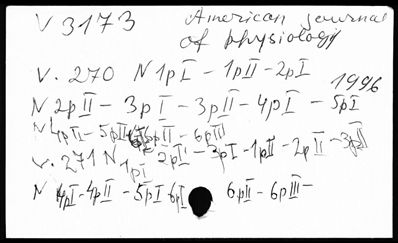 V 3173 American journal
of physiology
V. 270 N 1pI - 1pII - 2pI
1996
N 2pII - 3pI - 3pII - 4pI - 5pI
N 4pII - 5pII 6pII - 6pIII
V. 271 N 1pI 2pI - 3pI - 1pII - 2pII - 3pII
N 4pI - 4pII - 5pI 6pI 6pII - 6pIII -